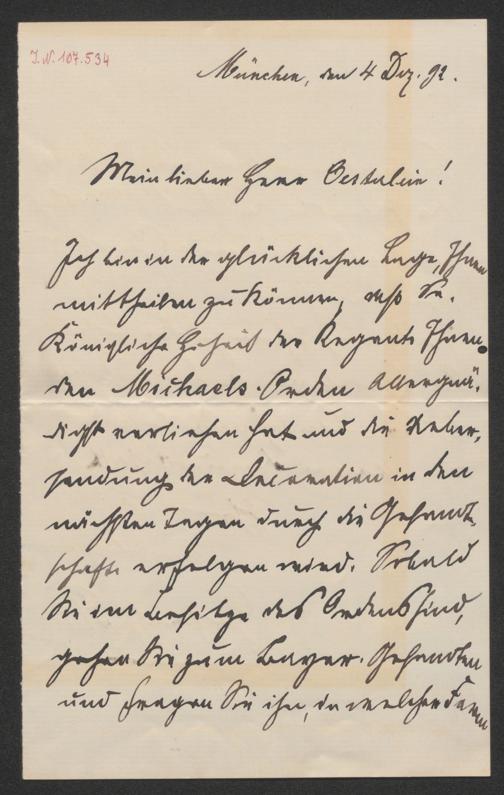 J.N. 107.534
München, den 4 Dez. 92.
Mein lieber Herr Oestelein!
Ich bin in der glücklichen Lage, Ihnen
mittheilen zu können, daß Se.
Königliche Hoheit der Regent Ihnen
den Michaels-Orden Allergnä-
digst verliehen hat und die Ueber-
sendung der Decoration in den
nächsten Tagen durch die Gesandt-
schaft erfolgen wird. Sobald
Sie im Besitze des Ordens sind,
gehen Sie zum Bayer. Gesandten
und fragen Sie ihn, in welcher Form